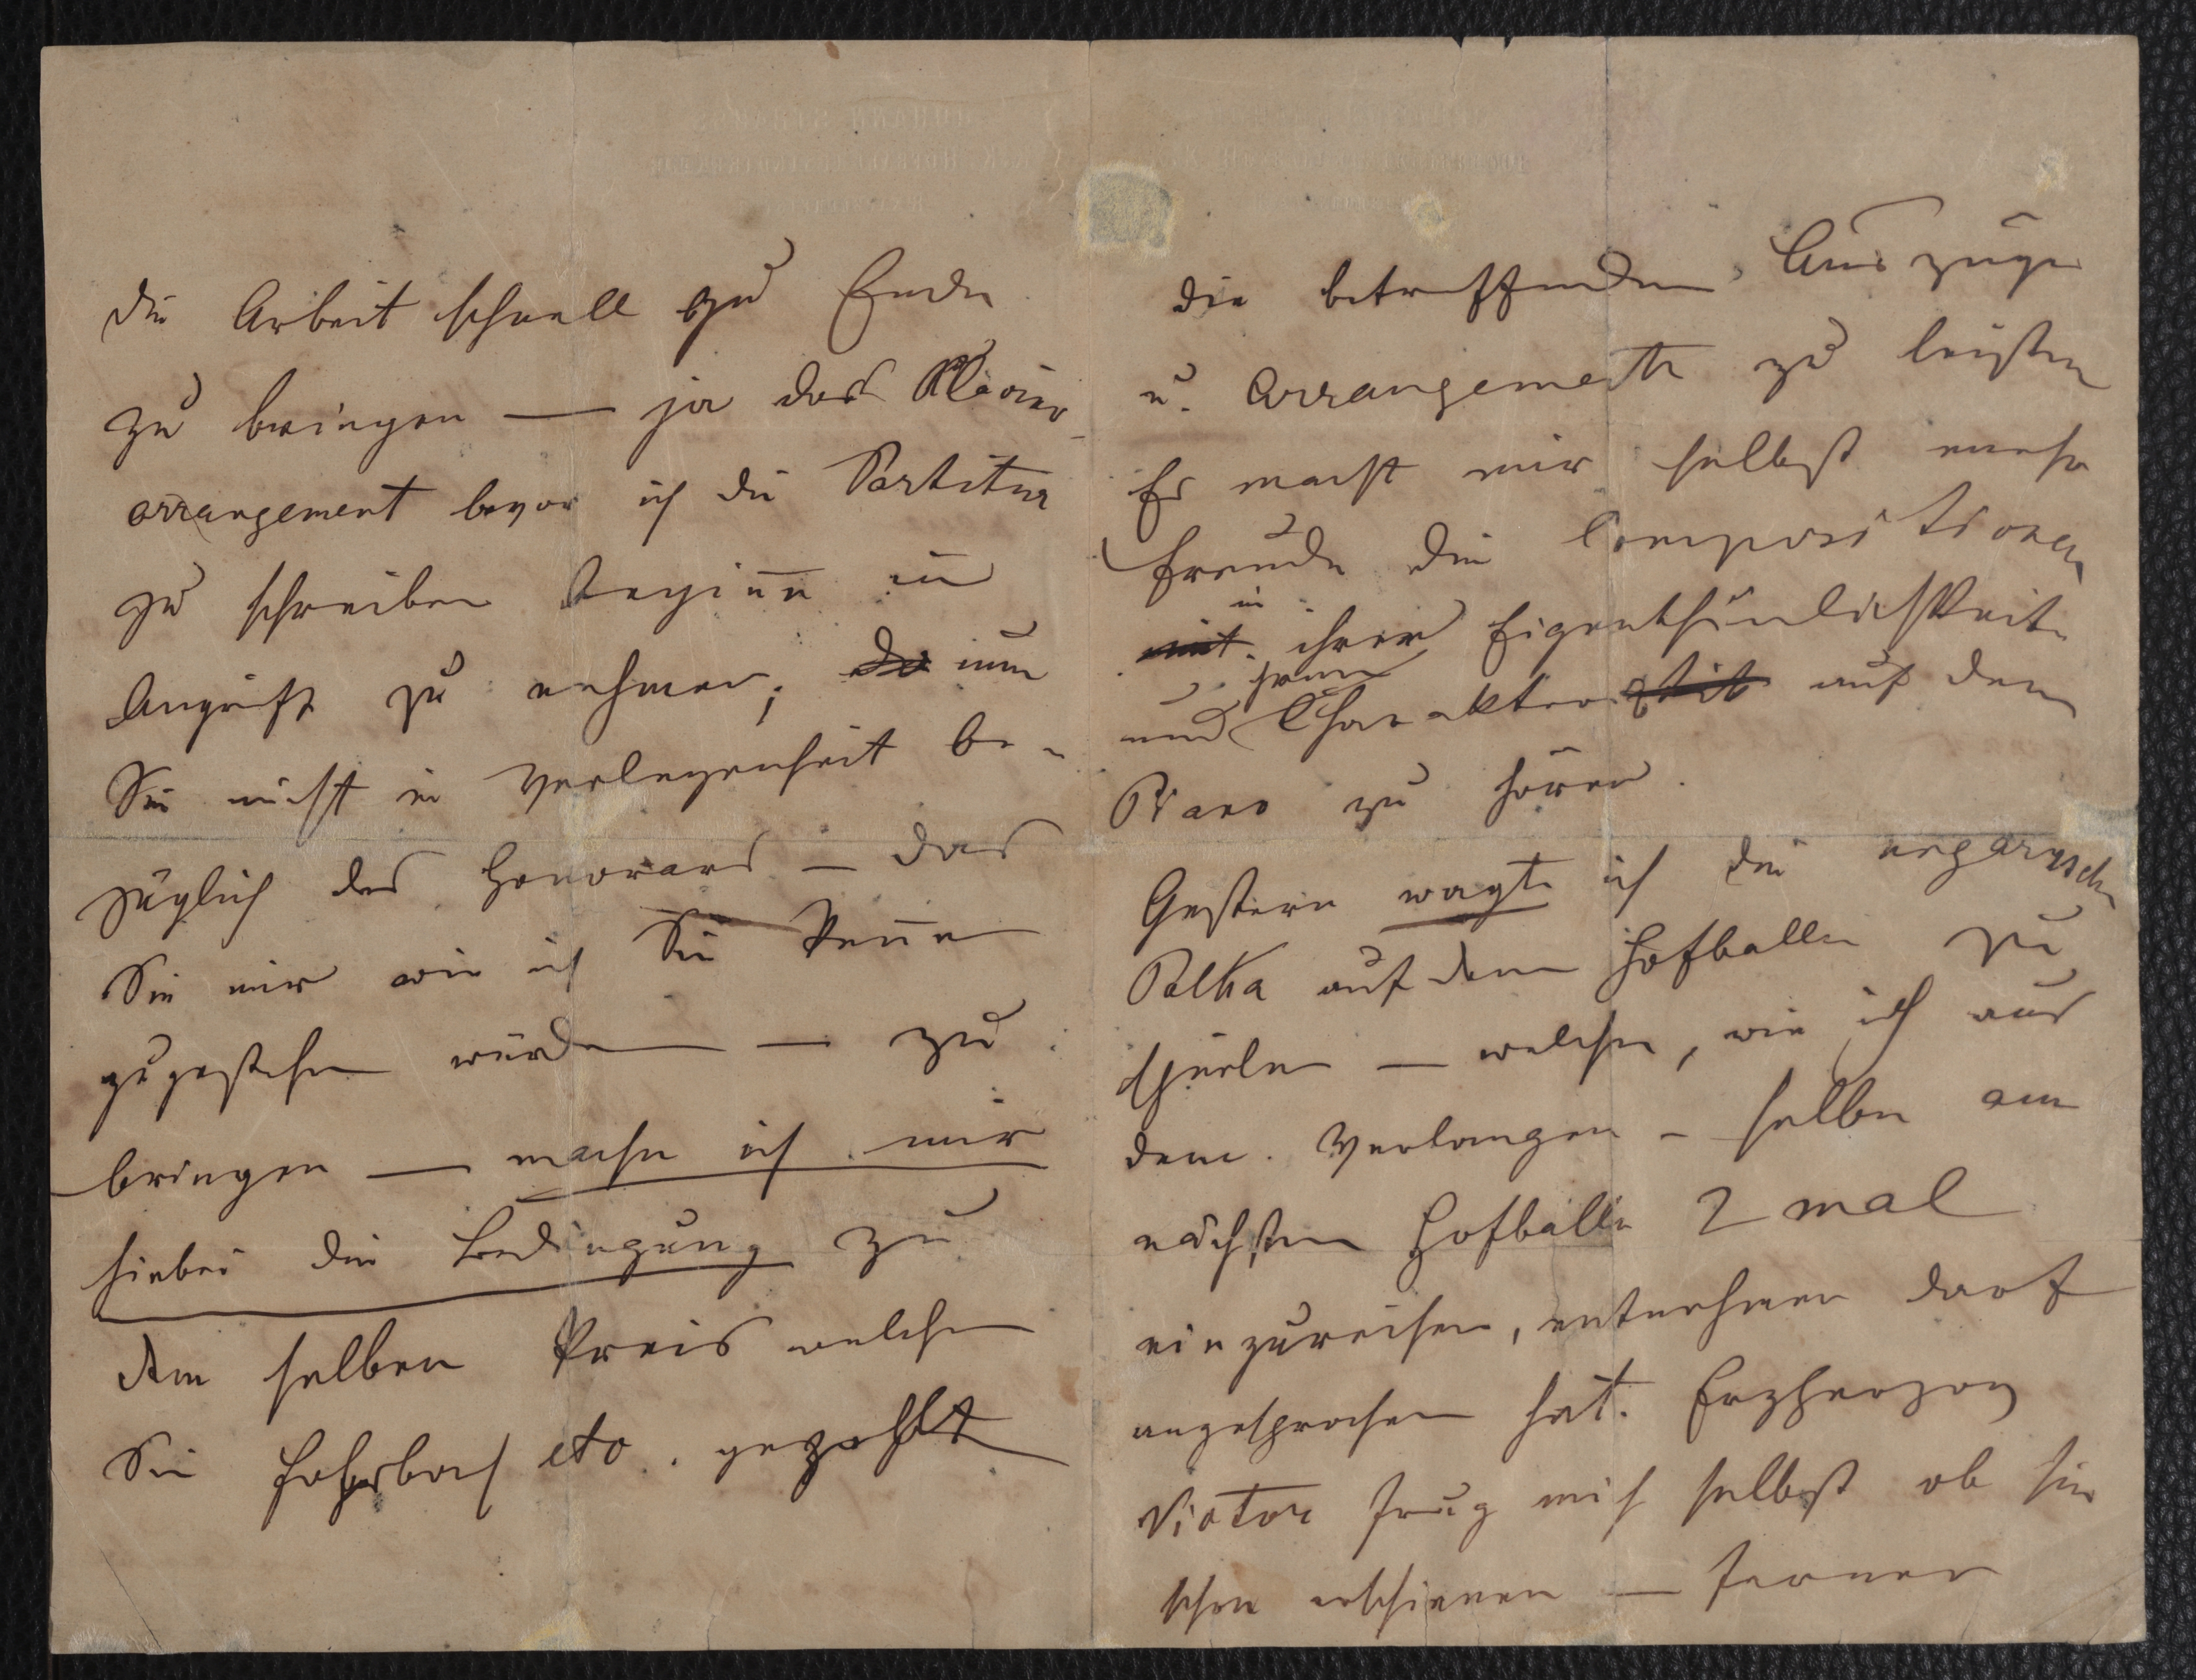 die Arbeit schnell zu Ende
zu bringen — ja das Klavier-
arrangement bevor ich die Partitur
zu schreiben beginne in
Angriff zu nehmen; um
Sie nicht in Verlegenheit be-
züglich des Honorars – das
Sie mir wie ich Sie kenne
zugestehen würden — zu
bringen — mache ich mir
hiebei die Bedingung zu
dem selben Preis welchen
Sie Fahrbach etc. gezahlt
die betreffenden Auszüge
u. Arrangements zu leisten
Es macht mir selbst mehr
Freude die Compositionen
in ihrer Eigenthümlichkeit
und Charakter auf dem
Piano zu hören.
Gestern wagte ich die ungarische
Polka auf dem Hofballe zu
spielen — welche, wie ich aus
dem Verlangen – selbe am
nächsten Hofballe 2 mal
einzureihen, entnehmen darf
angesprochen hat. Erzherzog
Victor frug mich selbst ob sie
schon erschienen — ferner